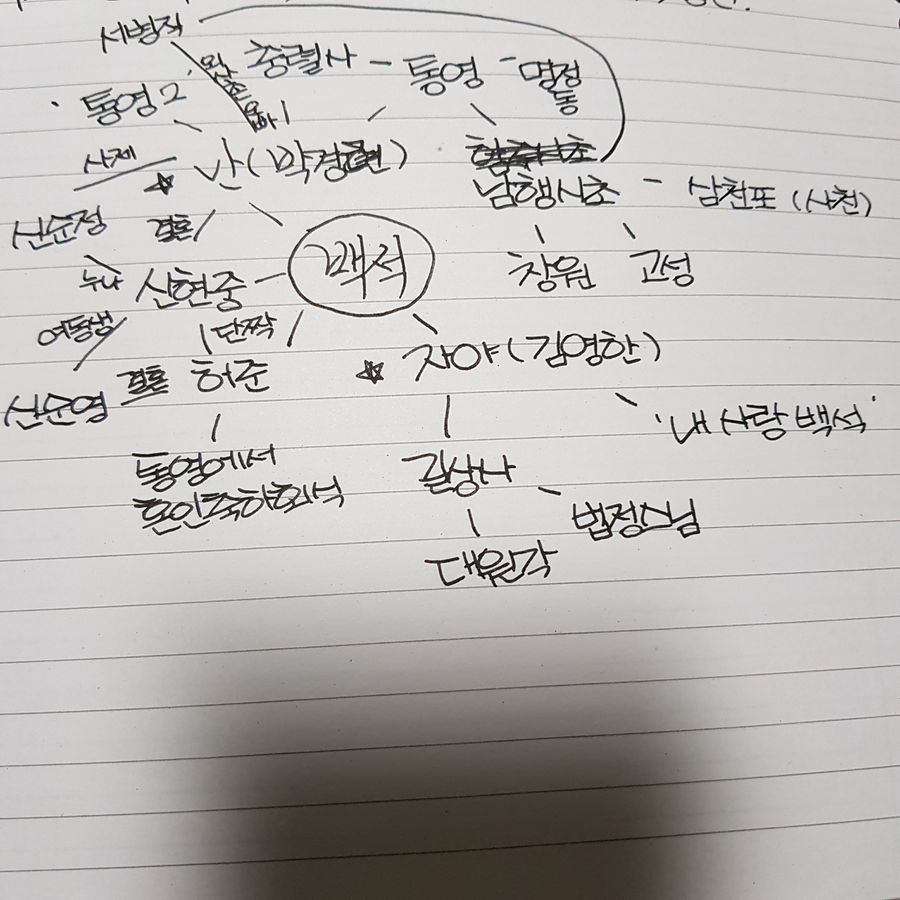 서병직
외사촌 오빠
충렬사 - 통영 - 명정동
통영2
사제
난 (박경련)
남행시초 - 삼천포 (사천)
신순정
결혼
백석
창원 고성
누나
신현중
여동생
단짝
자야 (김영한)
신순영 결혼 허준
'내 사랑 백석'
통영에서
혼인축하회석
길상사
법정스님
대원각